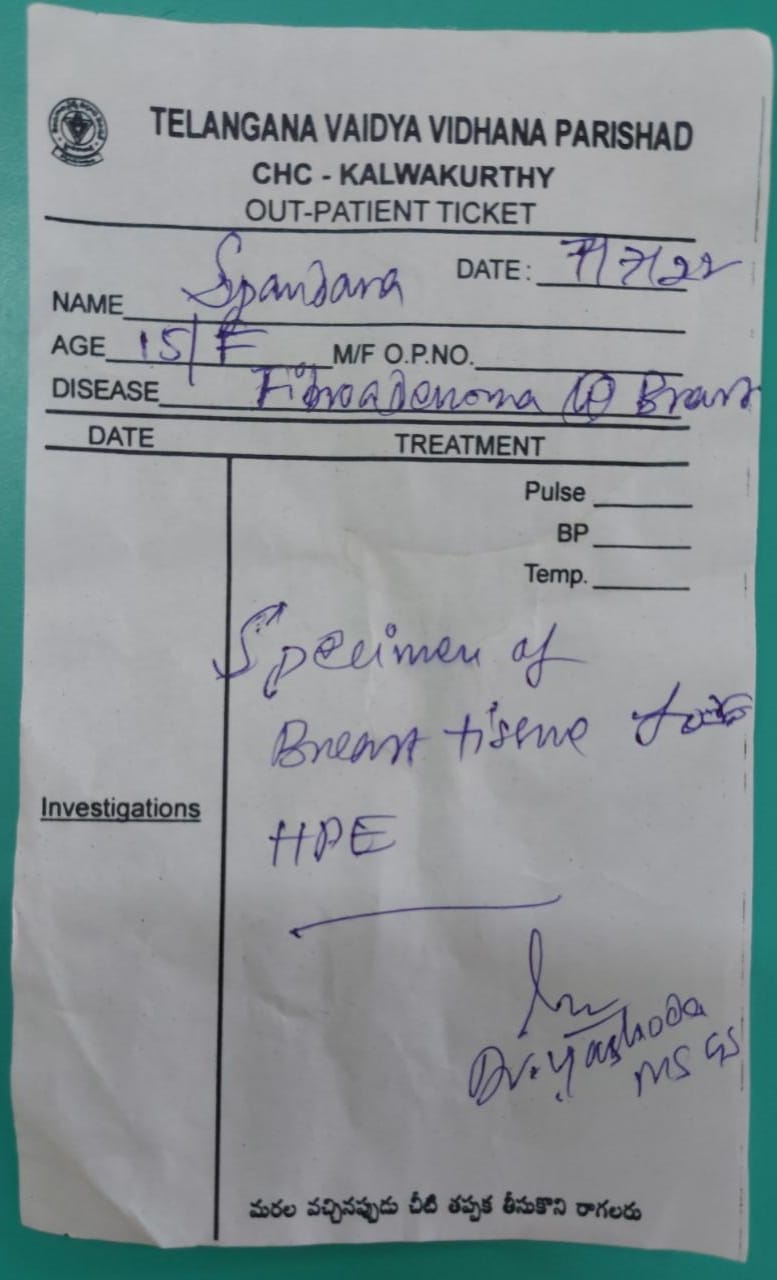 TELANGANA VAIDYA VIDHANA PARISHAD
CHC - KALWAKURTHY
OUT-PATIENT TICKET
NAME Spandana DATE: 7/7/22
AGE 15/F M/F O.P.NO.
DISEASE Fibroadenoma Breast
DATE TREATMENT
Pulse
BP
Temp.
Specimen of
Breast tissue for
Investigations
HPE
Dr. Yashoda
MS GS
మరల వచ్చినప్పుడు చీటి తప్పక తీసుకొని రాగలరు